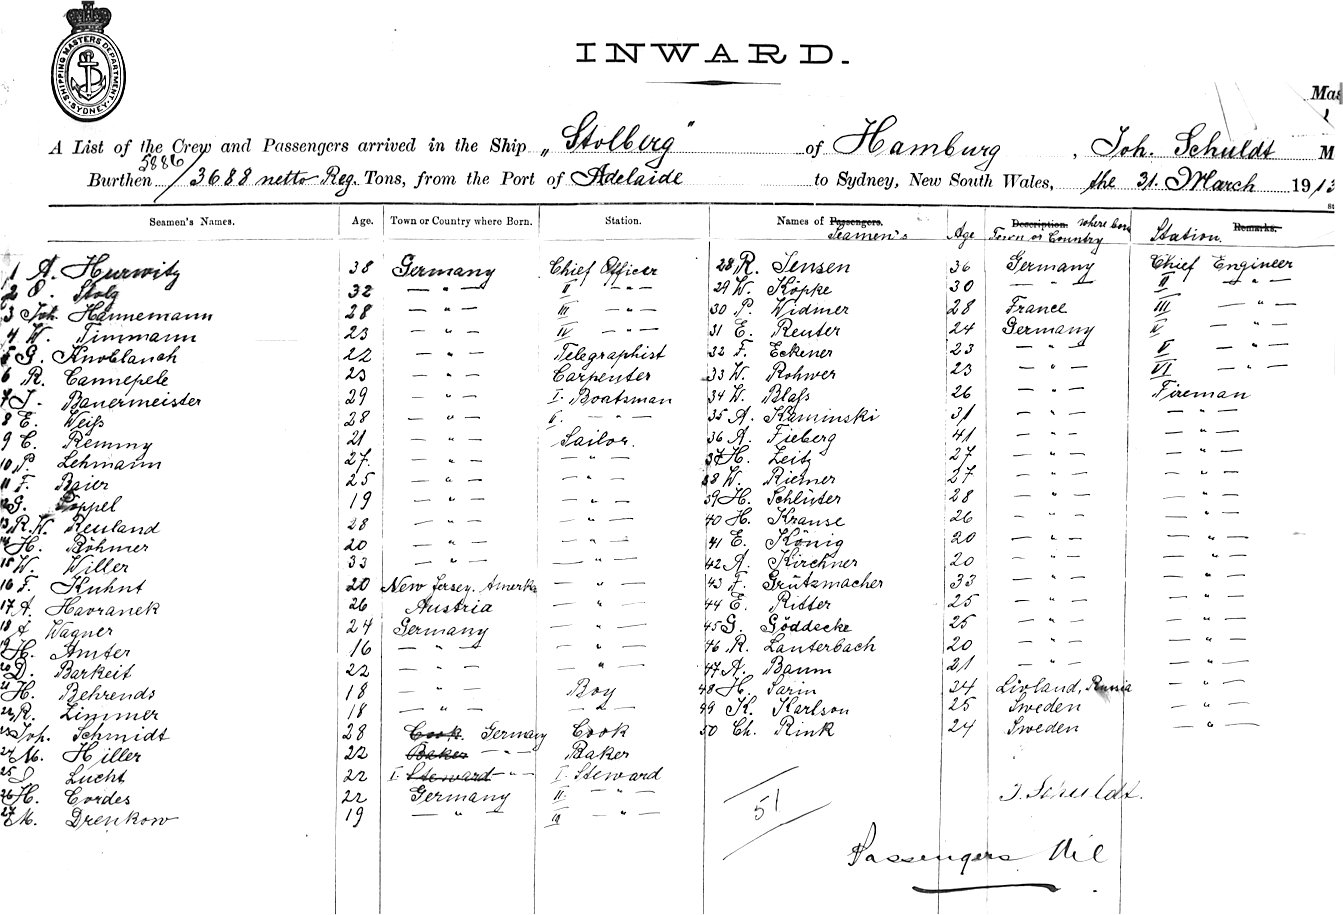 SHIPPING MASTERS DEPARTMENT SYDNEY
INWARD.
Mas
A List of the Crew and Passengers arrived in the Ship „Stolberg" of Hamburg, Joh. Schuldt M
Burthen 5886/3688 netto Reg. Tons, from the Port of Adelaide to Sydney, New South Wales, the 31. March 1913
Seamen's Names. Age. Town or Country where Born. Station. Names of Passengers. Seamen's Age Description. Town or Country where born Station. Remarks.
1 A. Hurwitz 38 Germany Chief Officer
2 Stolz 32 — " — II — " —
3 Joh. Hannemann 28 — " — III — " —
4 W. Timmann 23 — " — IV — " —
5 G. Knoblauch 22 — " — Telegraphist
6 R. Cannepele 23 — " — Carpenter
7 J. Bauermeister 29 — " — I. Boatsman
8 E. Weiß 28 — " — II. — " —
9 C. Remmy 21 — " — Sailor.
10 P. Lehmann 27. — " — — " —
11 F. Baier 25 — " — — " —
12 G. Poppel 19 — " — — " —
13 R.W. Reuland 28 — " — — " —
14 H. Böhmer 20 — " — — " —
15 W. Willer 33 — " — — " —
16 F. Kuhnt 20 New Jersey. Amerika — " —
17 A. Havranek 26 Austria — " —
18 A. Wagner 24 Germany — " —
19 H. Amter 16 — " — — " —
20 D. Barkeit 22 — " — — " —
21 H. Behrends 18 — " — Boy
22 R. Limmer 18 — " — — " —
23 Joh. Schmidt 28 Cook. Germany Cook
24 M. Hiller 22 Baker — " — Baker
25 Lucht 22 I. Steward — " — I. Steward
26 H. Cordes 22 Germany II — " —
27 M. Drenkow 19 — " — III — " —
28 R. Jensen 36 Germany Chief Engineer
29 W. Köpke 30 — " — II — " —
30 P. Widmer 28 France III — " —
31 E. Reuter 24 Germany — " —
32 F. Eckener 23 — " — V — " —
33 W. Rohwer 23 — " — VI — " —
34 W. Blaß 26 — " — Fireman
35 A. Kaminski 31 — " — — " —
36 A. Fieberg 41 — " — — " —
37 H. Leitz 27 — " — — " —
38 W. Riemer 27 — " — — " —
39 H. Schlüter 28 — " — — " —
40 H. Krause 26 — " — — " —
41 E. König 20 — " — — " —
42 A. Kirchner 20 — " — — " —
43 F. Grützmacher 33 — " — — " —
44 E. Ritter 25 — " — — " —
45 G. Göddecke 25 — " — — " —
46 R. Lauterbach 20 — " — — " —
47 A. Baum 21 — " — — " —
48 H. Sarin 24 Livland, Russia — " —
49 K. Karlson 25 Sweden — " —
50 Ch. Rink 24 Sweden — " —
J. Schuldt.
51
Passengers Nil